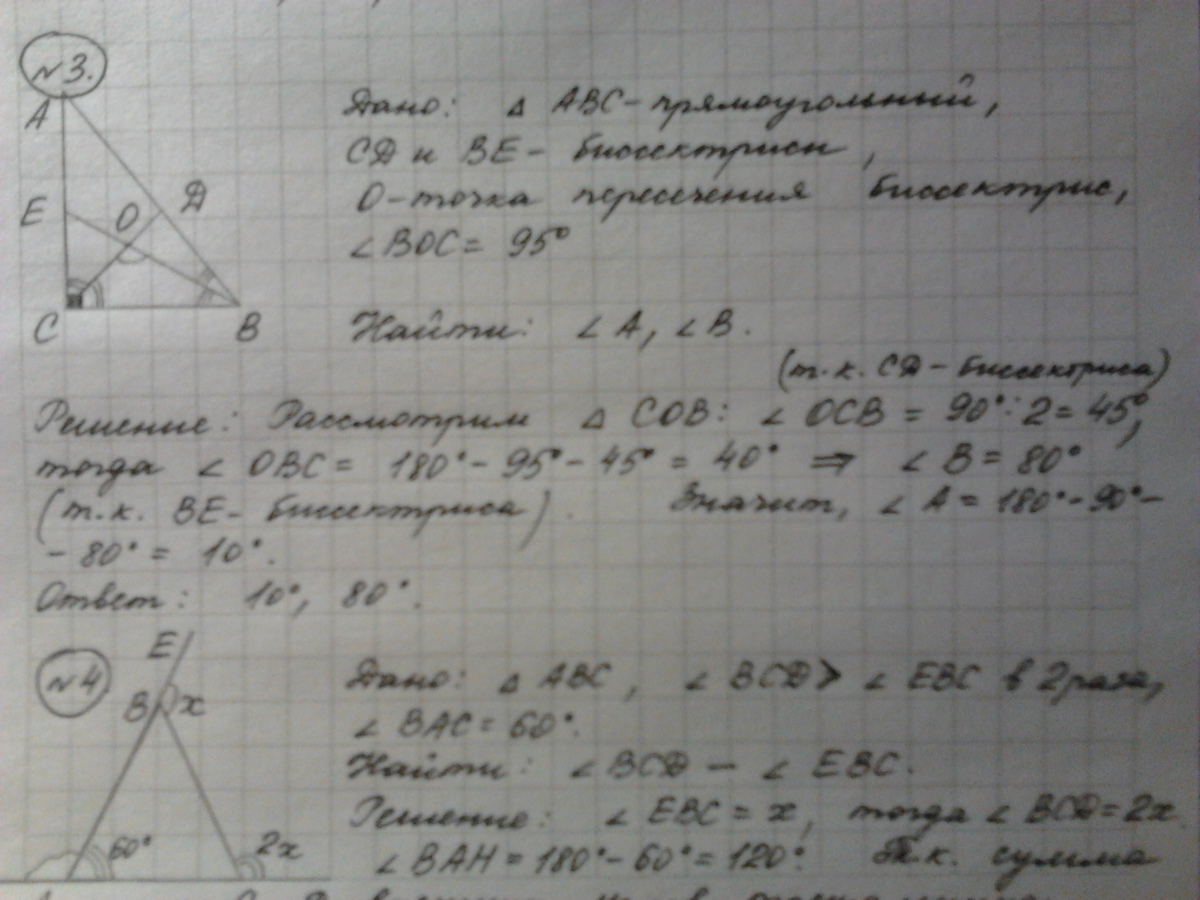 №3.
A
E
O
D
C
B
Дано: △ ABC - прямоугольный,
CD и BE - биссектрисы,
O - точка пересечения биссектрис,
∠BOC = 95°
Найти: ∠A, ∠B.
(т.к. CD - биссектриса)
Решение: Рассмотрим △ COB: ∠ OCB = 90°:2 = 45°,
тогда ∠ OBC = 180° - 95° - 45° = 40° ⇒ ∠B = 80°
(т.к. BE - биссектриса). Значит, ∠A = 180° - 90° -
- 80° = 10°.
Ответ: 10°, 80°.
№4
E
B
x
60°
2x
Дано: △ ABC, ∠ BCD > ∠ EBC в 2 раза,
∠ BAC = 60°.
Найти: ∠BCD - ∠ EBC.
Решение: ∠ EBC = x, тогда ∠ BCD = 2x
∠ BAH = 180° - 60° = 120°. Т.к. сумма